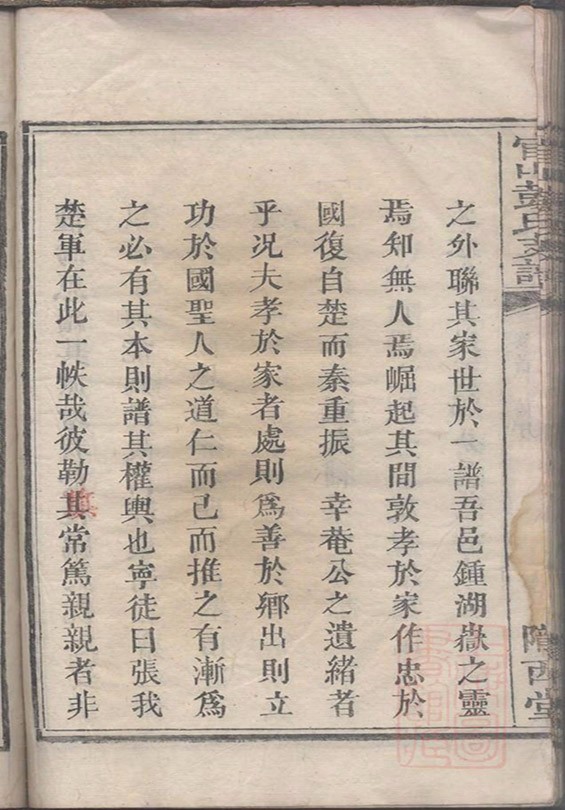 官山彭氏支譜
隴西堂
之外聯其家世於一譜吾邑鍾湖嶽之靈
焉知無人焉崛起其間敦孝於家作忠於
國復自楚而秦重振 幸菴公之遺緒者
乎況夫孝於家者處則爲善於鄉出則立
功於國聖人之道仁而已而推之有漸爲
之必有其本則譜其權輿也寧徒曰張我
楚軍在此一帙哉彼勒其常篤親親者非